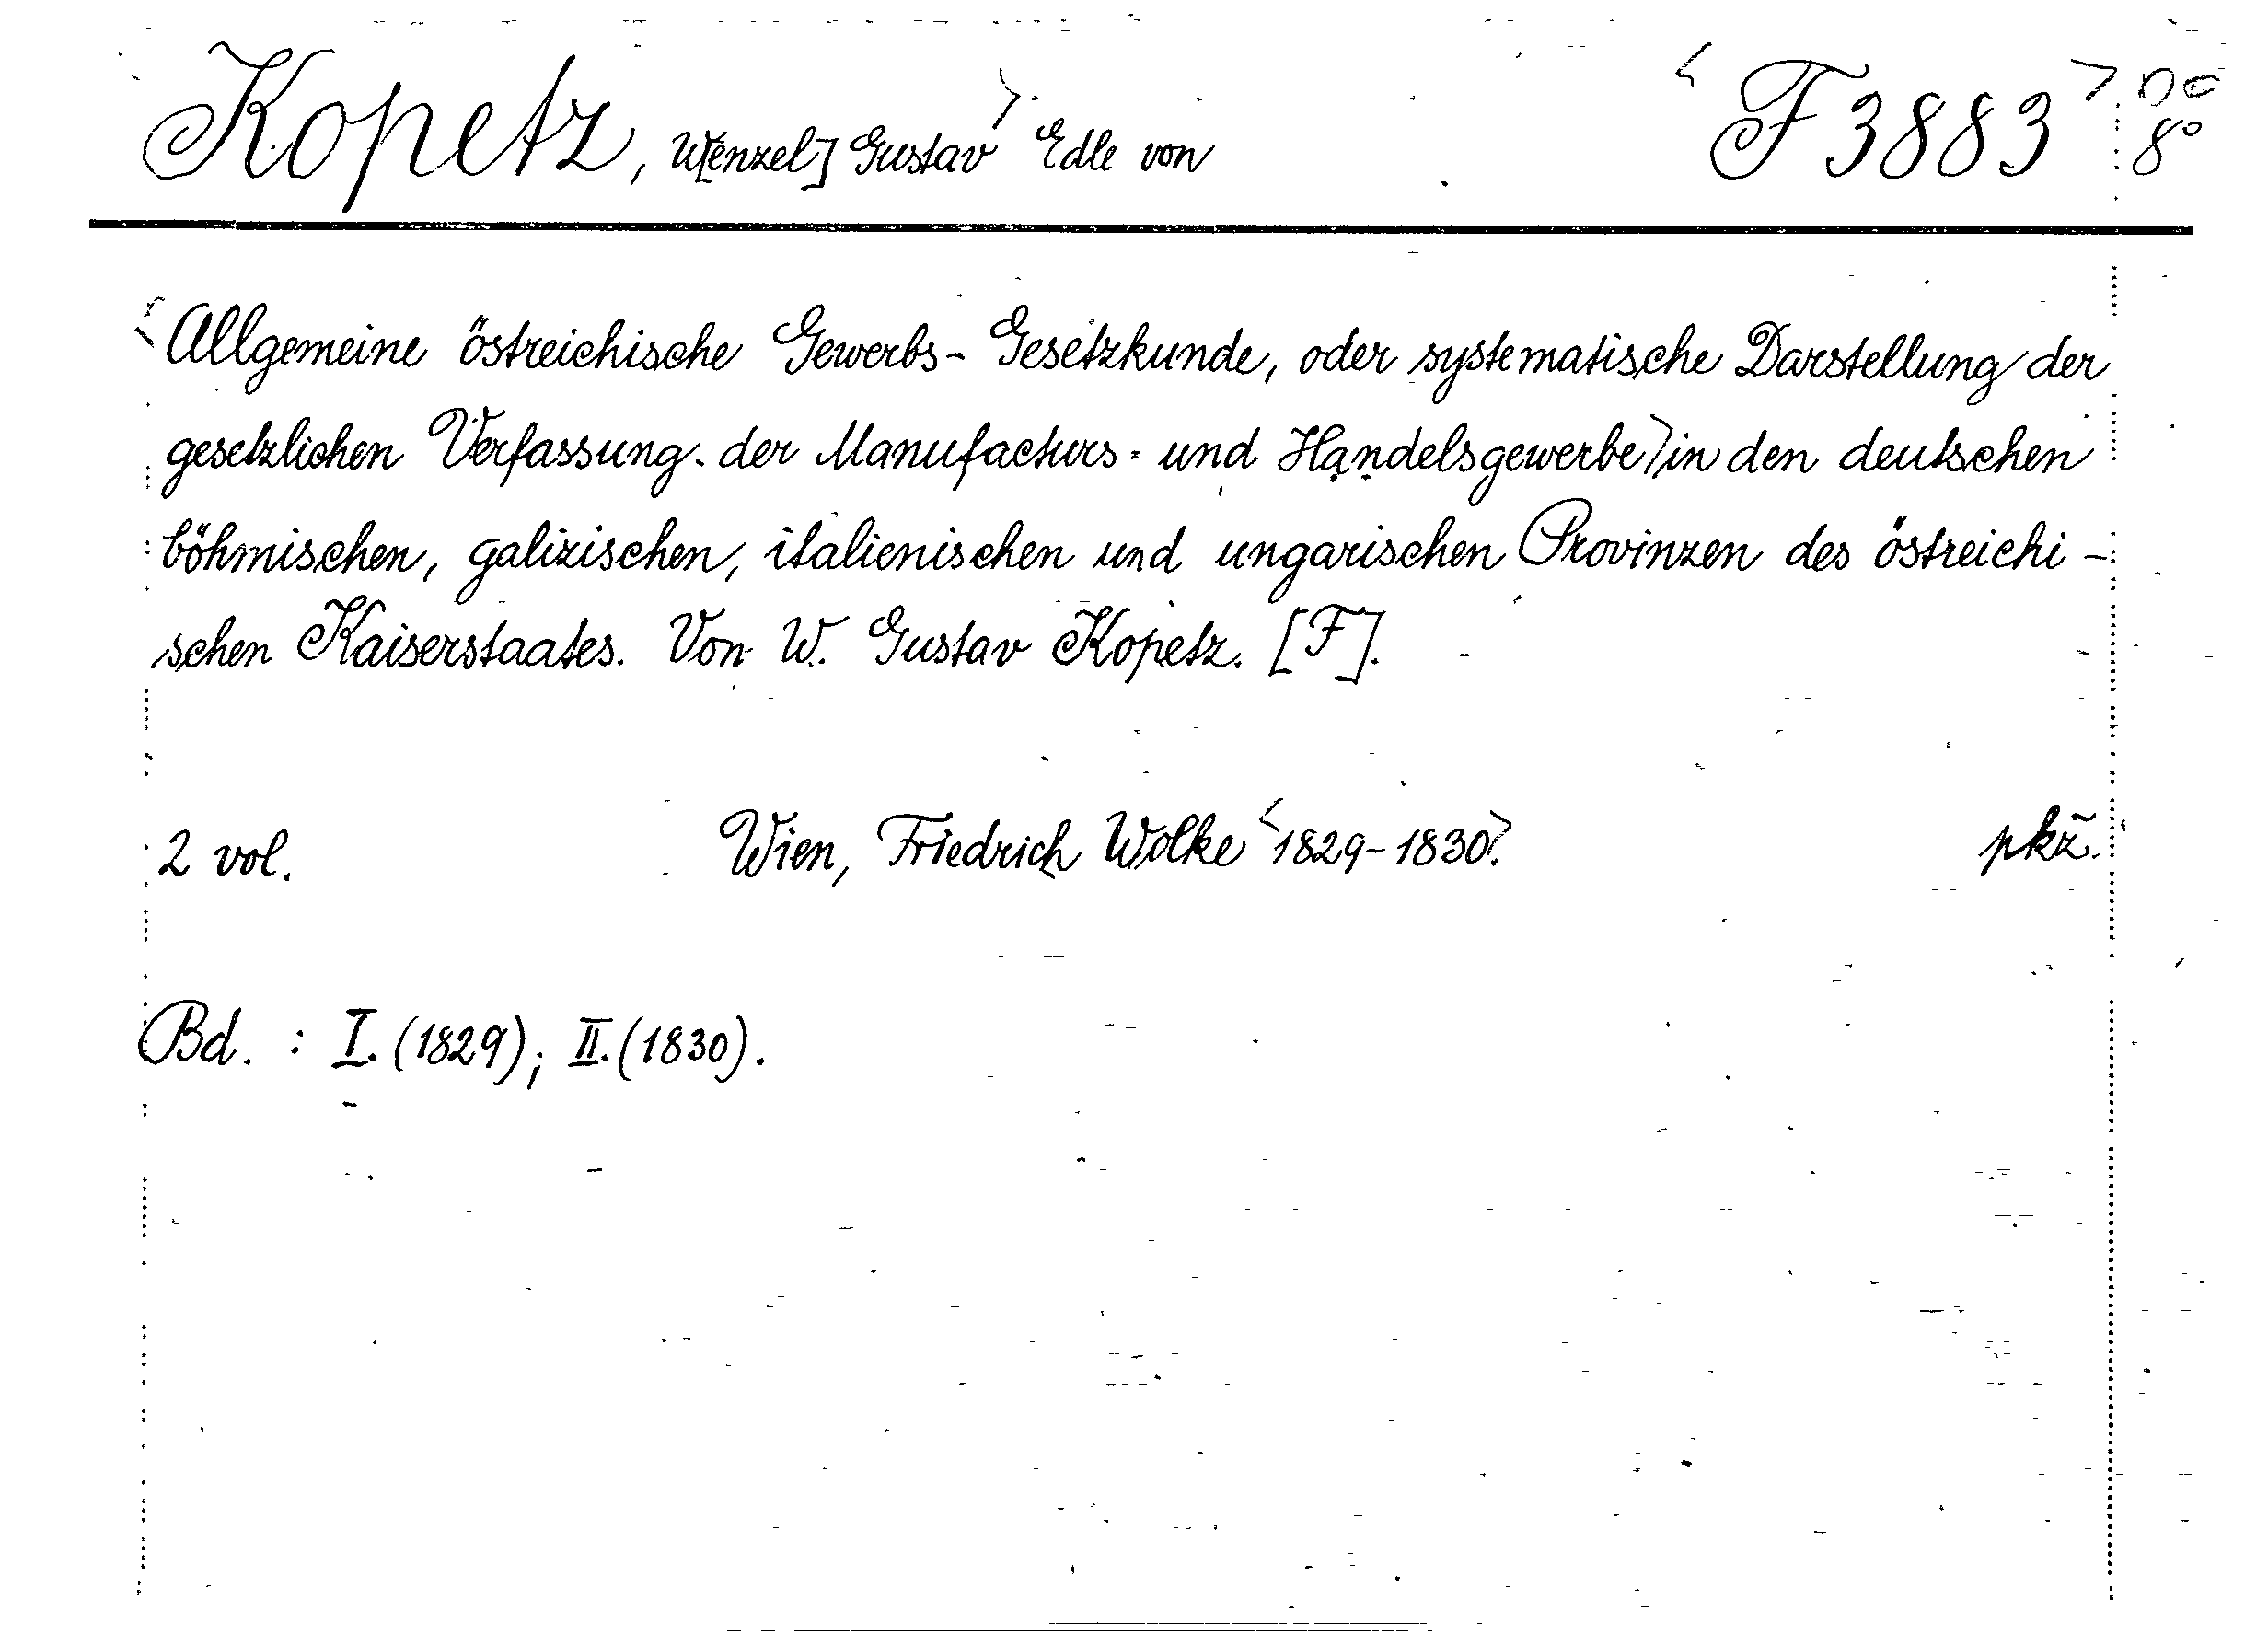 Kopetz, W[enzel] Gustav> Edle von <F 3883> 8°
<Allgemeine östreichische Gewerbs-Gesetzkunde, oder systematische Darstellung der
gesetzlichen Verfassung der Manufacturs- und Handelsgewerbe> in den deutschen
böhmischen, galizischen, italienischen und ungarischen Provinzen des östreichi-
schen Kaiserstaates. Von W. Gustav Kopetz. [F].
2 vol. Wien, Friedrich Wolke <1829-1830>. pkž.
Bd. : I. (1829); II. (1830).